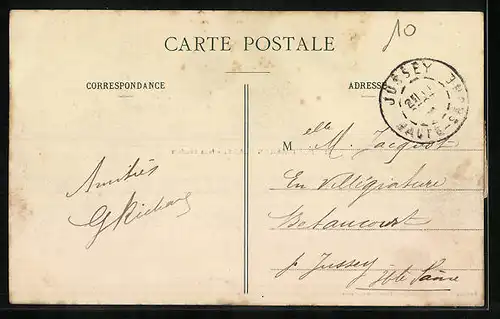 10
CARTE POSTALE
CORRESPONDANCE
ADRESSE
JUSSEY
HAUTE-SAÔNE
Melle M. Jacquot
En Villégiature
Betaucourt
p. Jussey
Hte Saône
Amitiés
G Richard